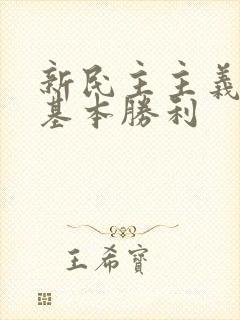 新民主主義
基本勝利
王希賓